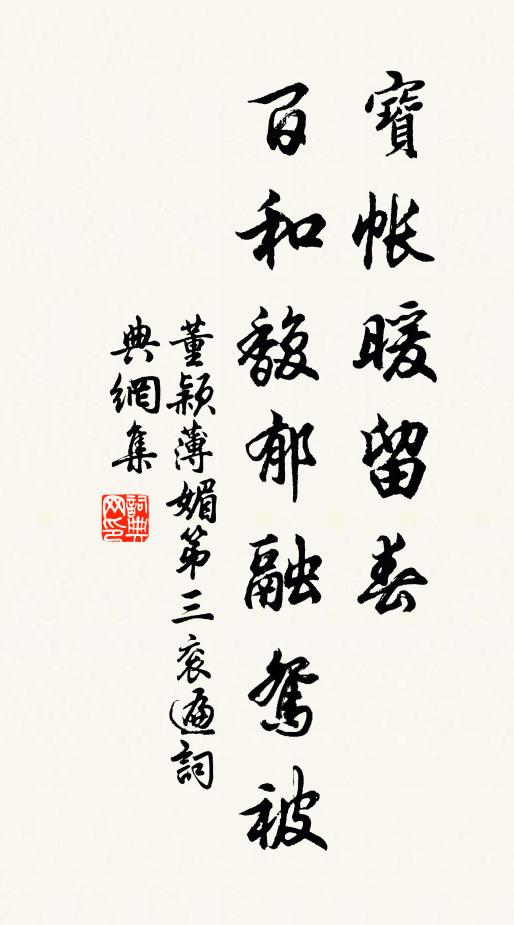 寶帳暖留春
百和馥郁融鴛被
董穎薄媚第三袞遍詞
典網集
詞典網印